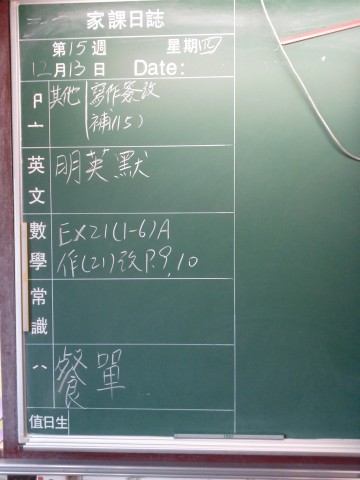 家課日誌
第15週 星期四
12月13日 Date:
其他 寫作家改
補(15)
英文 明英默
數學 Ex21(1-6)A
作(21)改P.9,10
常識
餐單
值日生